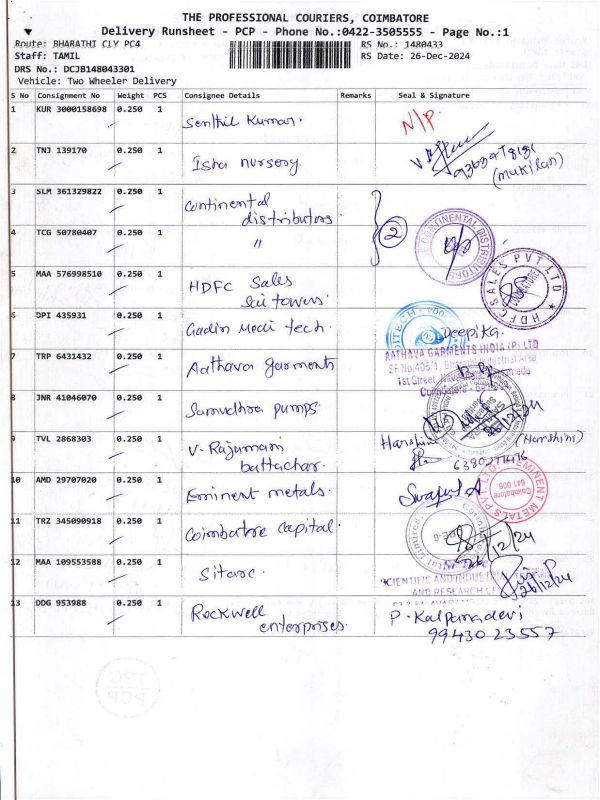 THE PROFESSIONAL COURIERS, COIMBATORE
Delivery Runsheet - PCP - Phone No.:0422-3505555 - Page No.:1
Route: BHARATHI CLY PC4
RS No.: 1480433
Staff: TAMIL
RS Date: 26-Dec-2024
DRS No.: DCJB148043301
Vehicle: Two Wheeler Delivery
S No Consignment No Weight PCS Consignee Details Remarks Seal & Signature
1 KUR 3000158698 0.250 1 Senthil Kumar. N/P.
2 TNJ 139170 0.250 1 Isha nursery.
(mukilan)
3 SLM 361329822 0.250 1 Continental
distributors. 2
4 TCG 50780407 0.250 1 "
CONTINENTAL DISTRIBUTORS
5 MAA 576998510 0.250 1 HDFC Sales
Sai towers.
HDFC SALES PVT LTD
6 DPI 435931 0.250 1 Cadin Medi tech. Deepika.
7 TRP 6431432 0.250 1 Aathava garments
AATHAVA GARMENTS INDIA (P) LTD
SF No.408/1, Bharathi Industrial Area
1st Street,
Coimbatore
8 JNR 41046070 0.250 1 Samudhra pumps. 26/12/24
9 TVL 2868303 0.250 1 V. Rajamani
battachar.
Harshini (Harshini)
10 AMD 29707020 0.250 1 Eminent metals.
EMINENT METALS PVT. LTD.
Coimbatore
641 006.
11 TRZ 345090918 0.250 1 Coimbatore capital.
26/12/24
12 MAA 109553588 0.250 1 Sitarc.
SCIENTIFIC AND INDUSTRIAL TESTING
AND RESEARCH CE
26/12/24
13 DDG 953988 0.250 1 Rockwell
enterprises.
P. Kalpanadevi
99430 23557